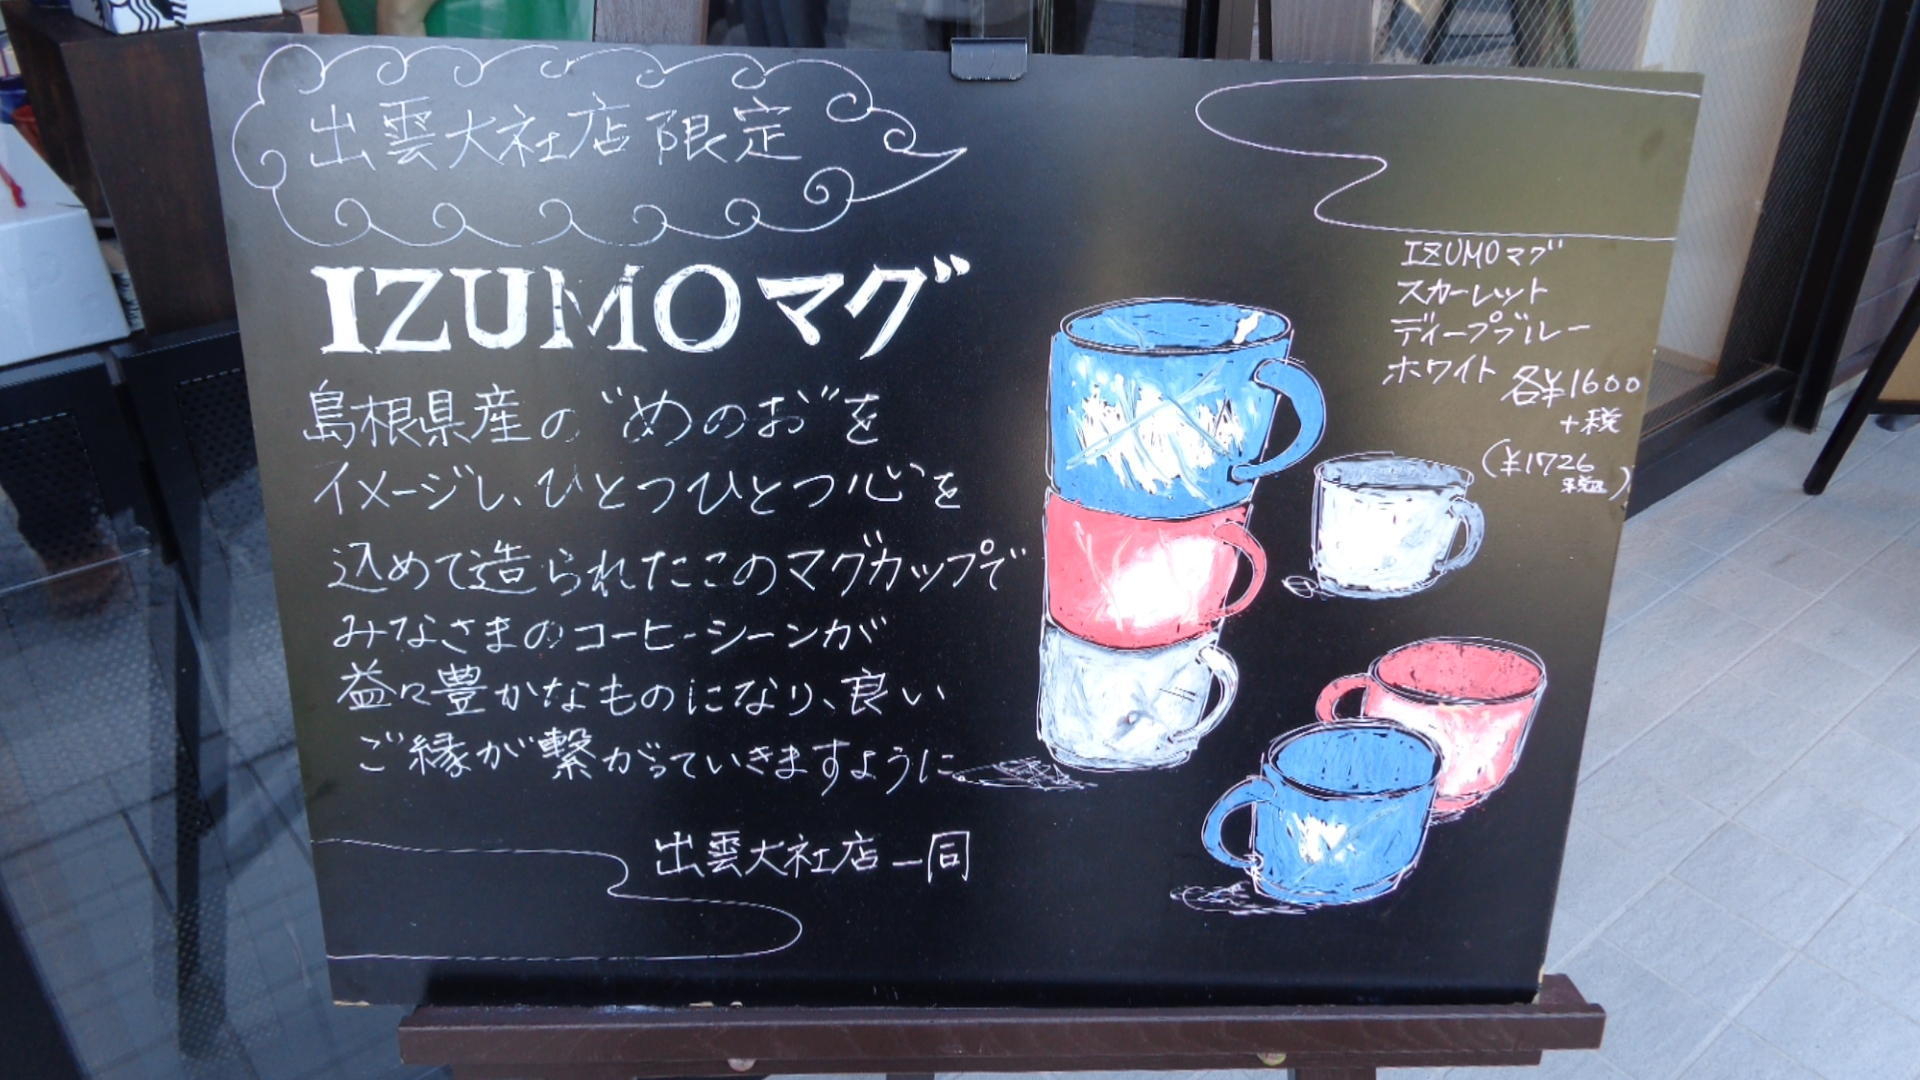 出雲大社店限定
IZUMOマグ
島根県産の"めのお"を
イメージし、ひとつひとつ心を
込めて造られたこのマグカップで
みなさまのコーヒーシーンが
益々豊かなものになり、良い
ご縁が繋がっていきますように。
出雲大社店一同
IZUMOマグ
スカーレット
ディープブルー
ホワイト 各¥1600
+税
(¥1726
税込)